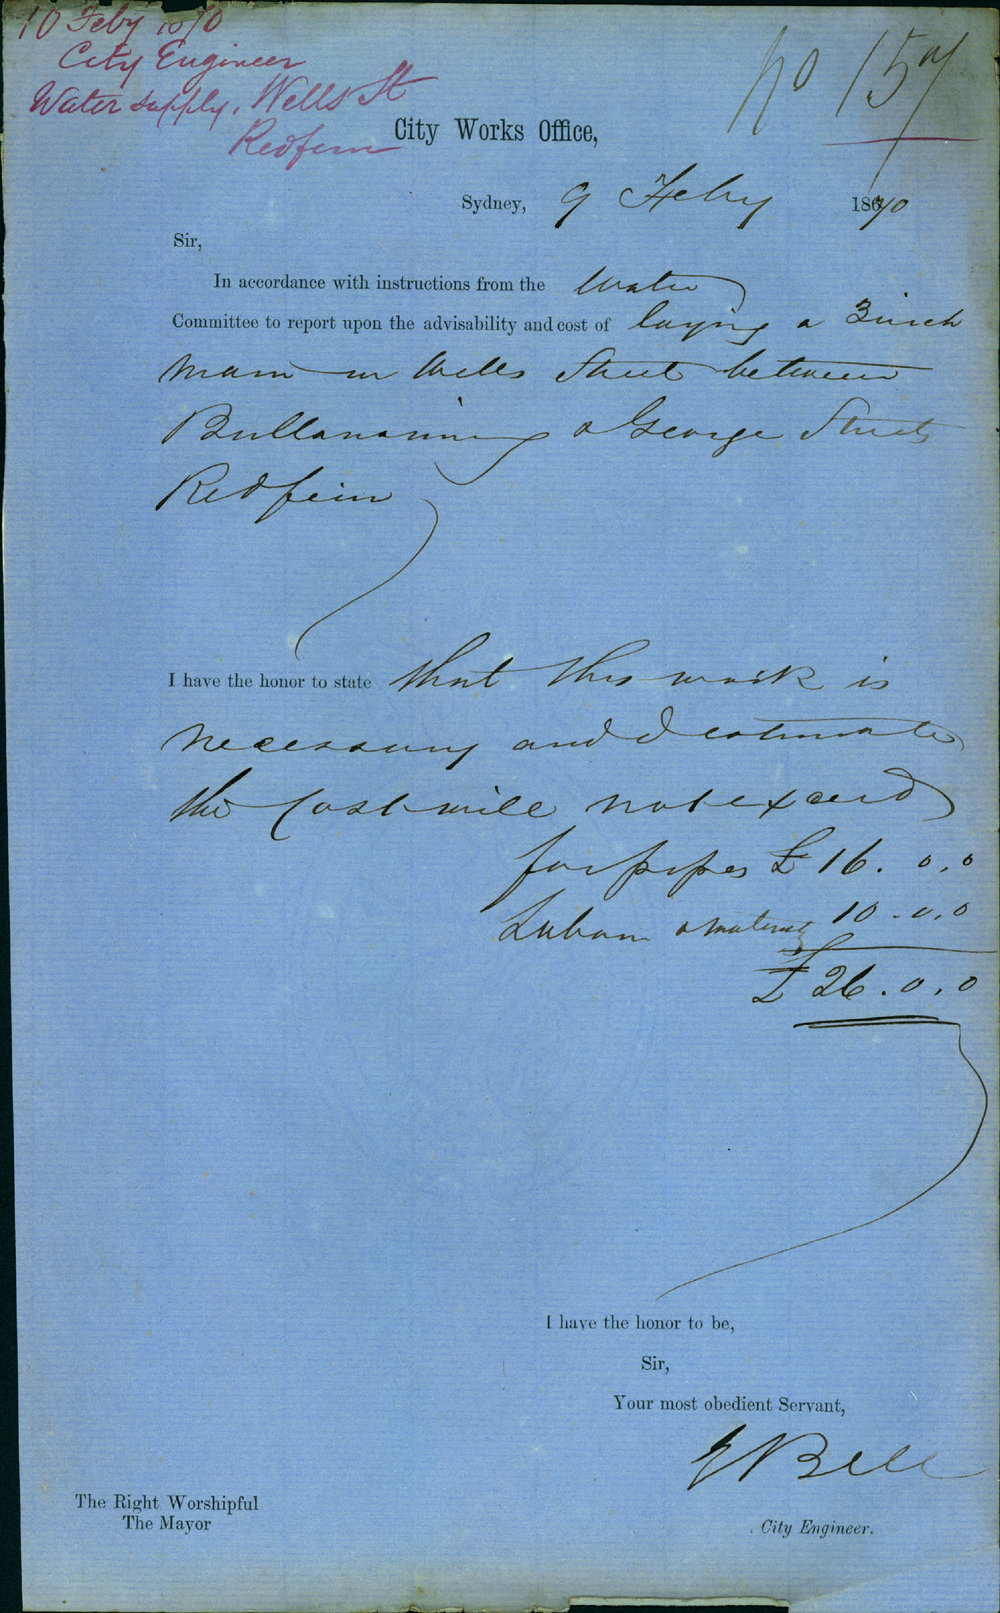 10 Feby 1870
City Engineer
Water supply, Wells St
Redfern
No 157
City Works Office,
Sydney, 9 Feby 1870
Sir,
In accordance with instructions from the Water
Committee to report upon the advisability and cost of laying a 3 inch
Main in Wells Street between
Bullanaming & George Streets
Redfern
I have the honor to state that this work is
necessary and I estimate
the Cost will not exceed
for pipes £ 16 . 0 . 0
Labour & material 10 . 0 . 0
£ 26 . 0 . 0
I have the honor to be,
Sir,
Your most obedient Servant,
E Bell
City Engineer.
The Right Worshipful
The Mayor